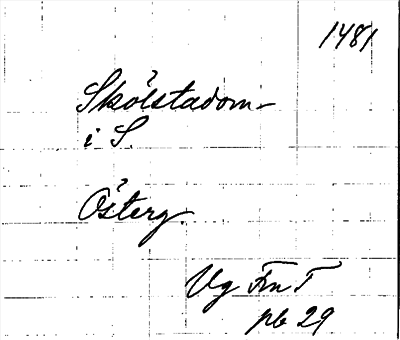 1481
Skólstadom-
i S.
Österg.
Vg Fm T
pb 29